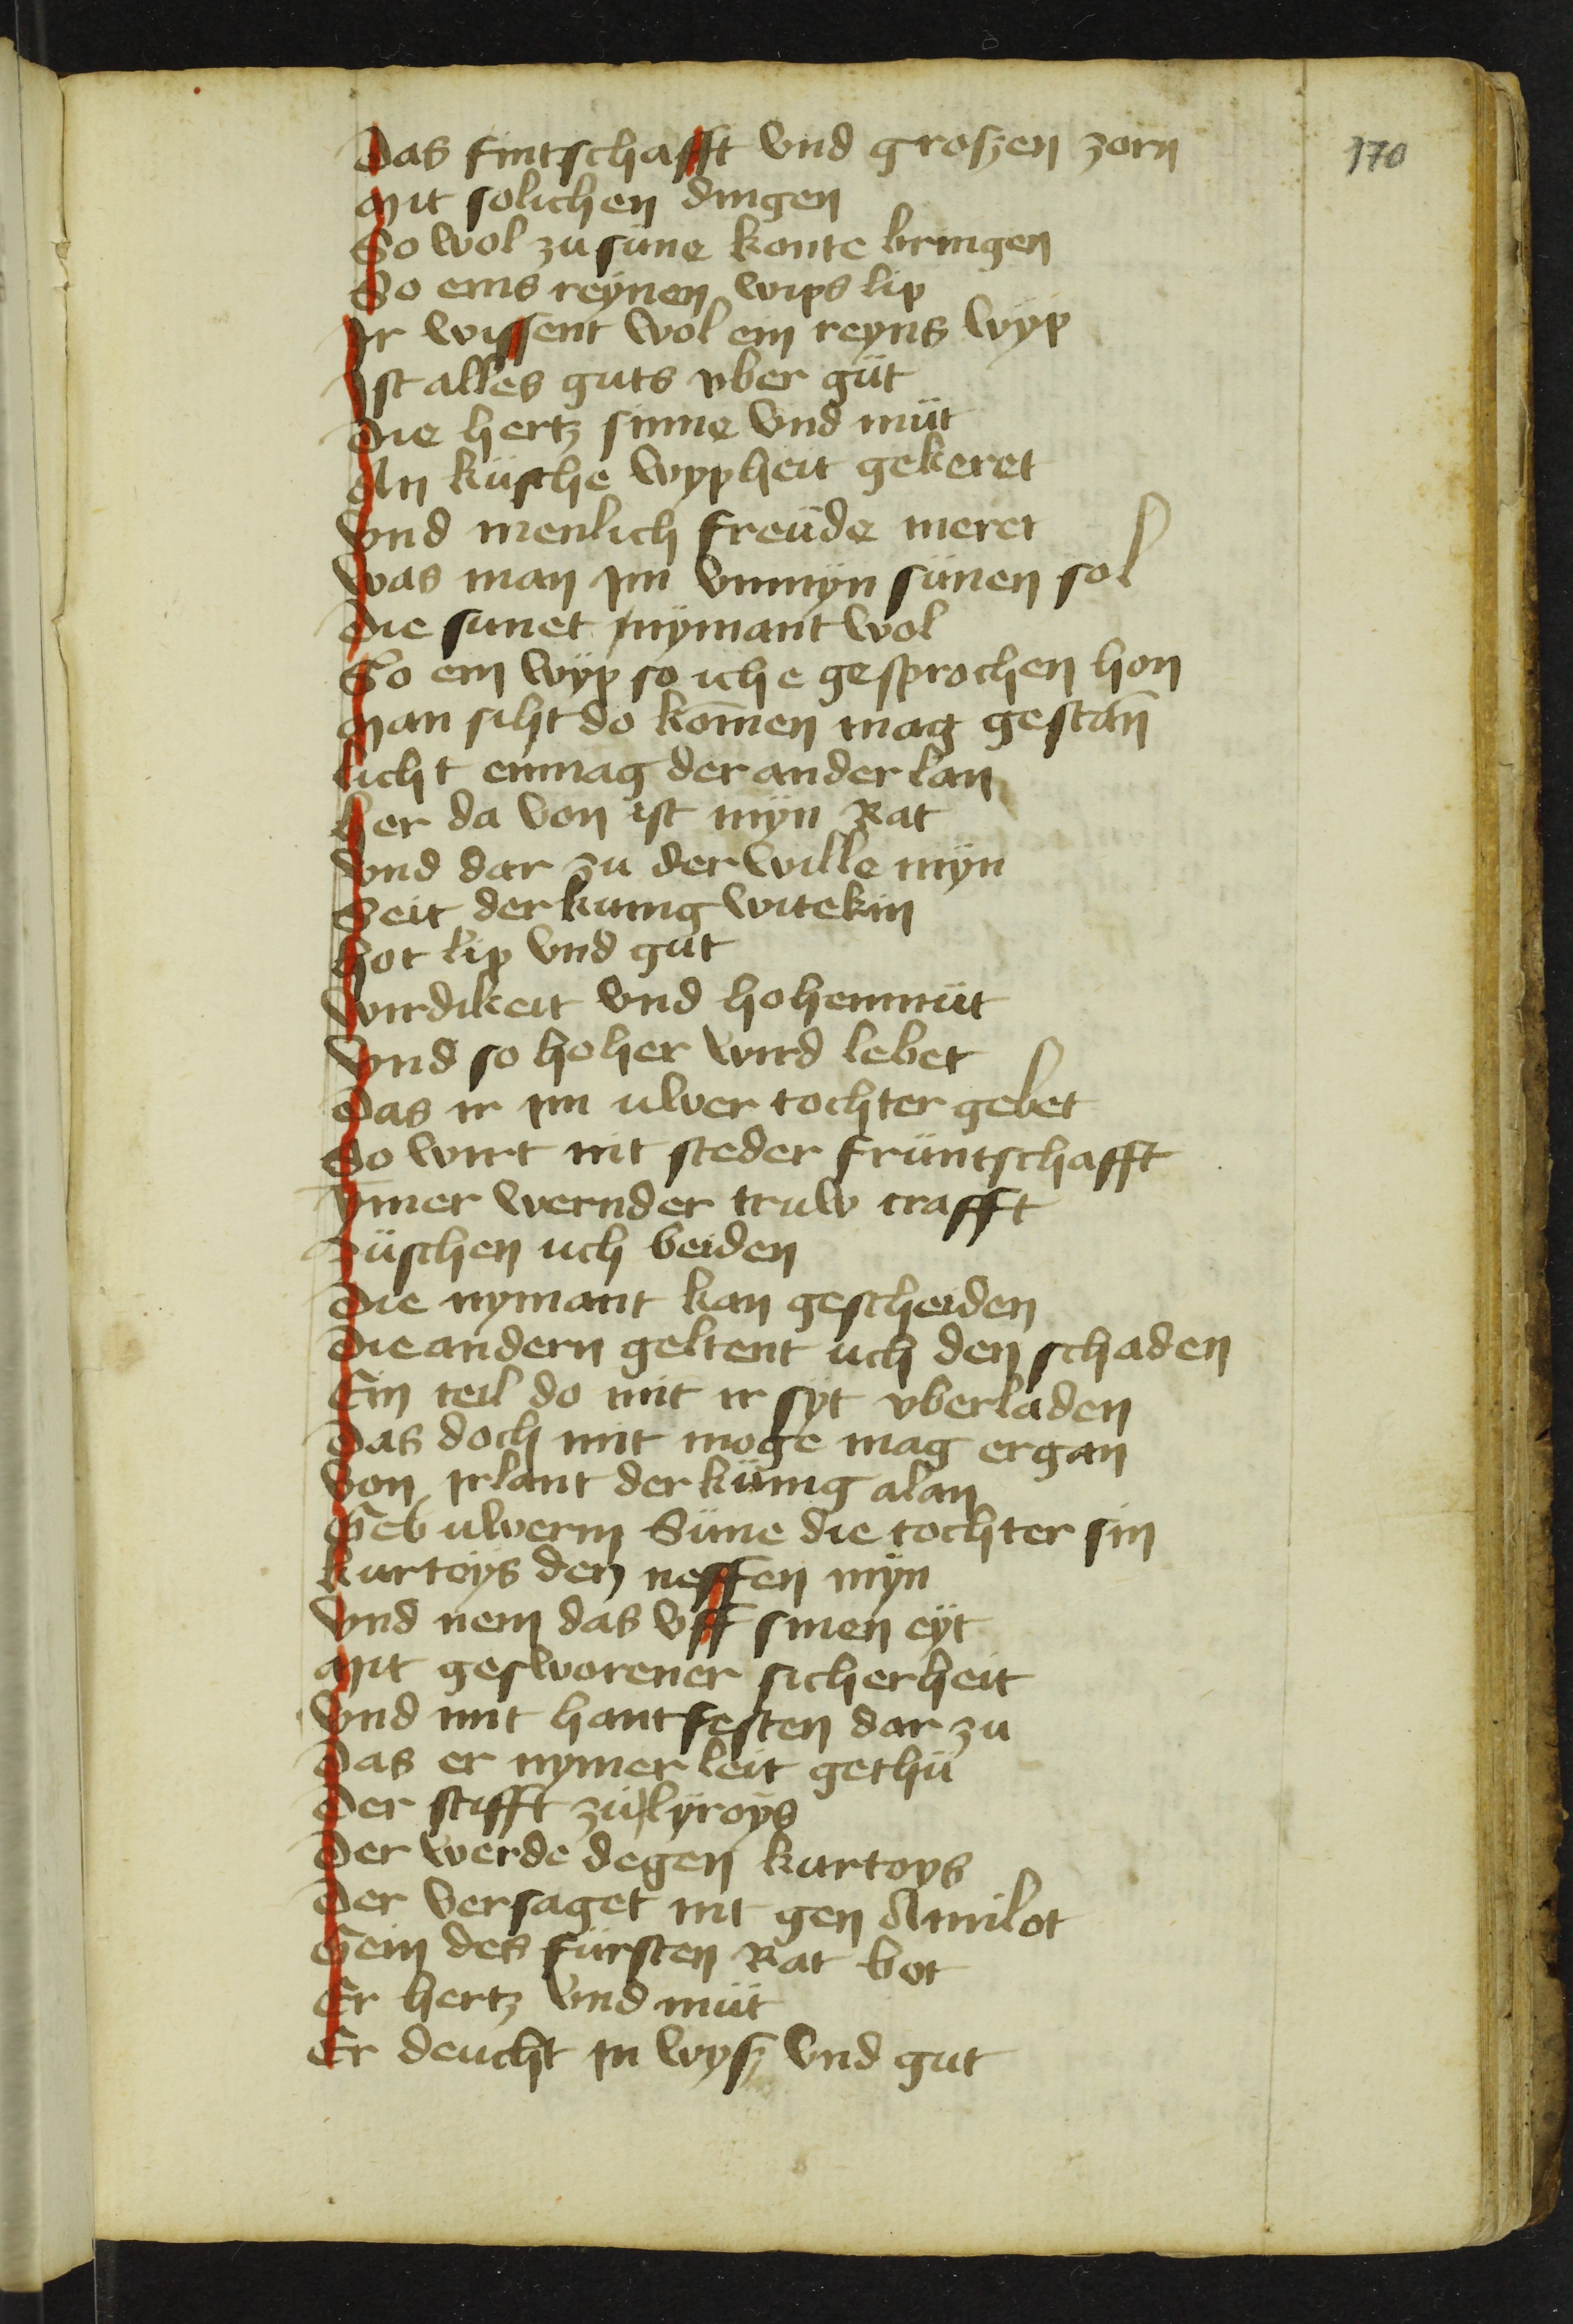 170
Das fintschafft vnd groszen zorn
Mit solichen dingen
So wol zu süne konte bringen
So eins reynen wips lip
Ir wissent wol ein reyns wÿp
Ist alles guts vber güt
Die hertz sinne vnd müt
An küsche wypheit gekeret
Vnd menlich freüde meret
Was man im vnmÿn sünen sol
Die sunet nÿmant wol
So ein wÿp so ich e gesprochen hon
Man siht do kom̄en mag gestan̄
Licht einmag der ander lan
Her da von ist mÿn Rat
Vnd dar zu der wille mÿn
Seit der kunig witekin
Hot lip vnd gut
Wirdikeit vnd hohenmüt
Vnd so hoher wird lebet
Das ir im ulwer tochter gebet
So wirt mit steder früntschafft
Ym̄er wernder truw crafft
Züschen uch beiden
Die nymant kan gescheiden
Die andern geltent uch den schaden
Ein teil do mit ir sÿt vberladen
Das doch mit moge mag ergan
Von Irlant der künig alan
Geb ulwerm Süne die tochter sin
Kurtoÿs den neffen mÿn
Vnd nem das vff sinen eÿt
Mit gesworener sicherheit
Vnd mit hantfesten dar zu
Das er nymer leit gethü
Der stifft zü lÿroÿs
Der werde degen kurtoys
Der versaget nit gen Amilot
Sein des fürsten Rat bot
Er hertz vnd müt
Er deucht in wysz vnd gut